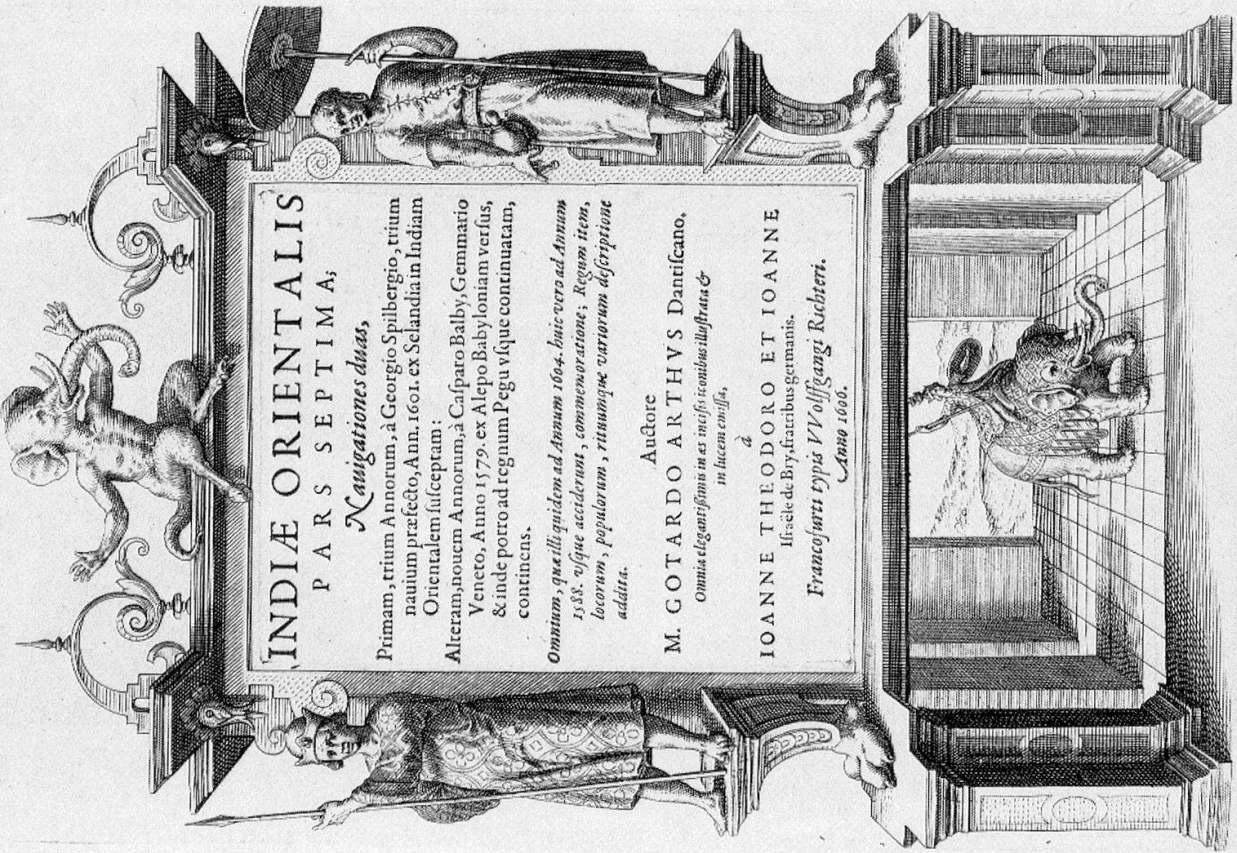 INDIÆ ORIENTALIS
PARS SEPTIMA;
Nauigationes duas,
Primam, trium Annorum, à Georgio Spilbergio, trium
nauium præfecto, Ann. 1601. ex Selandia in Indiam
Orientalem ſuſceptam:
Alteram, nouem Annorum, à Caſparo Balby, Gemmario
Veneto, Anno 1579. ex Alepo Babyloniam verſus,
& inde porro ad regnum Pegu vſque continuatam,
continens.
Omnium, quæ illi quidem ad Annum 1604. huic vero ad Annum
1588. vſque acciderunt, commemoratione; Regum item,
locorum, populorum, rituumque variorum deſcriptione
addita.
Auctore
M. GOTARDO ARTHVS Dantiſcano.
Omnia elegantiſſimis in æs inciſis iconibus illuſtrata &
in lucem emiſſa,
à
IOANNE THEODORO ET IOANNE
Iſraële de Bry, fratribus germanis.
Francofurti typis VVolffgangi Richteri.
Anno 1606.